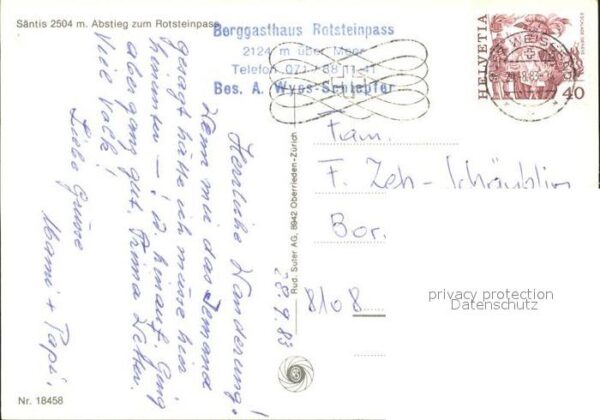 Säntis 2504 m. Abstieg zum Rotsteinpass
Berggasthaus Rotsteinpass
2124 m über Meer
Telefon 071 / 88 11 41
Bes. A. Wyss-Schläpfer
HELVETIA
40
28.9.83
Herrliche Wanderung!
Wenn mir das Jemand
gesagt hätte ich müsse hier
hinunter – ! u. hinauf. Ging
aber ganz gut. Prima Wetter.
Viele Volk!
Liebe Grüsse
Mami + Papi.
Rud. Suter AG, 8942 Oberrieden-Zürich
Fam.
F. Zeh - Schäublin
Bor.
8108
privacy protection
Datenschutz
Nr. 18458